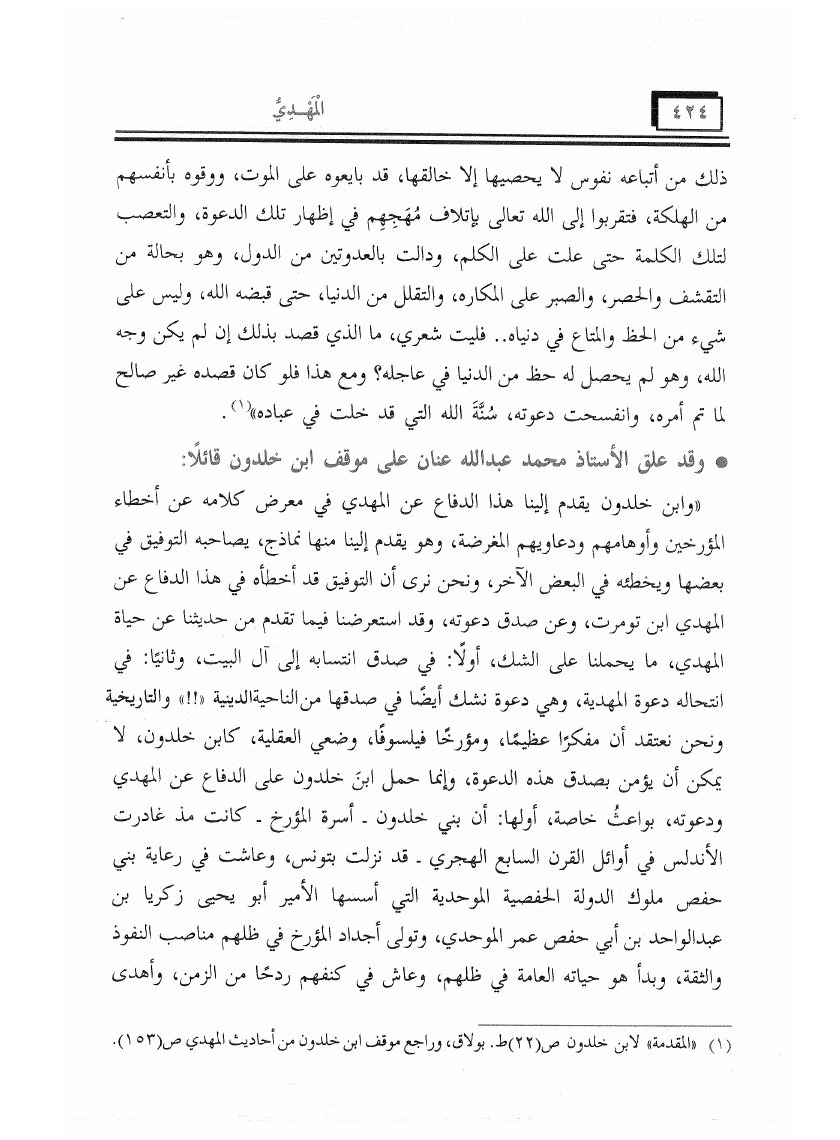 ٤٢٤
الْمَهْـدِيُّ
ذلك من أتباعه نفوس لا يحصيها إلا خالقها، قد بايعوه على الموت، ووقوه بأنفسهم
من الهلكة، فتقربوا إلى الله تعالى بإتلاف مُهَجِهِم في إظهار تلك الدعوة، والتعصب
لتلك الكلمة حتى علت على الكلم، ودالت بالعدوتين من الدول، وهو بحالة من
التقشف والحصر، والصبر على المكاره، والتقلل من الدنيا، حتى قبضه الله، وليس على
شيء من الحظ والمتاع في دنياه.. فليت شعري، ما الذي قصد بذلك إن لم يكن وجه
الله، وهو لم يحصل له حظ من الدنيا في عاجله؟ ومع هذا فلو كان قصده غير صالح
لما تم أمره، وانفسحت دعوته، سُنَّةَ الله التي قد خلت في عباده»(١).
● وقد علق الأستاذ محمد عبدالله عنان على موقف ابن خلدون قائلًا:
«وابن خلدون يقدم إلينا هذا الدفاع عن المهدي في معرض كلامه عن أخطاء
المؤرخين وأوهامهم ودعاويهم المغرضة، وهو يقدم إلينا منها نماذج، يصاحبه التوفيق في
بعضها ويخطئه في البعض الآخر، ونحن نرى أن التوفيق قد أخطأه في هذا الدفاع عن
المهدي ابن تومرت، وعن صدق دعوته، وقد استعرضنا فيما تقدم من حديثنا عن حياة
المهدي، ما يحملنا على الشك، أولًا: في صدق انتسابه إلى آل البيت، وثانيًا: في
انتحاله دعوة المهدية، وهي دعوة نشك أيضًا في صدقها من الناحية الدينية «!!» والتاريخية
ونحن نعتقد أن مفكرًا عظيمًا، ومؤرخًا فيلسوفًا، وضعي العقلية، كابن خلدون، لا
يمكن أن يؤمن بصدق هذه الدعوة، وإنما حمل ابنَ خلدون على الدفاع عن المهدي
ودعوته، بواعثُ خاصة، أولها: أن بني خلدون ـ أسرة المؤرخ ـ كانت مذ غادرت
الأندلس في أوائل القرن السابع الهجري ـ قد نزلت بتونس، وعاشت في رعاية بني
حفص ملوك الدولة الحفصية الموحدية التي أسسها الأمير أبو يحيى زكريا بن
عبدالواحد بن أبي حفص عمر الموحدي، وتولى أجداد المؤرخ في ظلهم مناصب النفوذ
والثقة، وبدأ هو حياته العامة في ظلهم، وعاش في كنفهم ردحًا من الزمن، وأهدى
(١) «المقدمة» لابن خلدون ص(٢٢)ط. بولاق، وراجع موقف ابن خلدون من أحاديث المهدي ص(١٥٣).